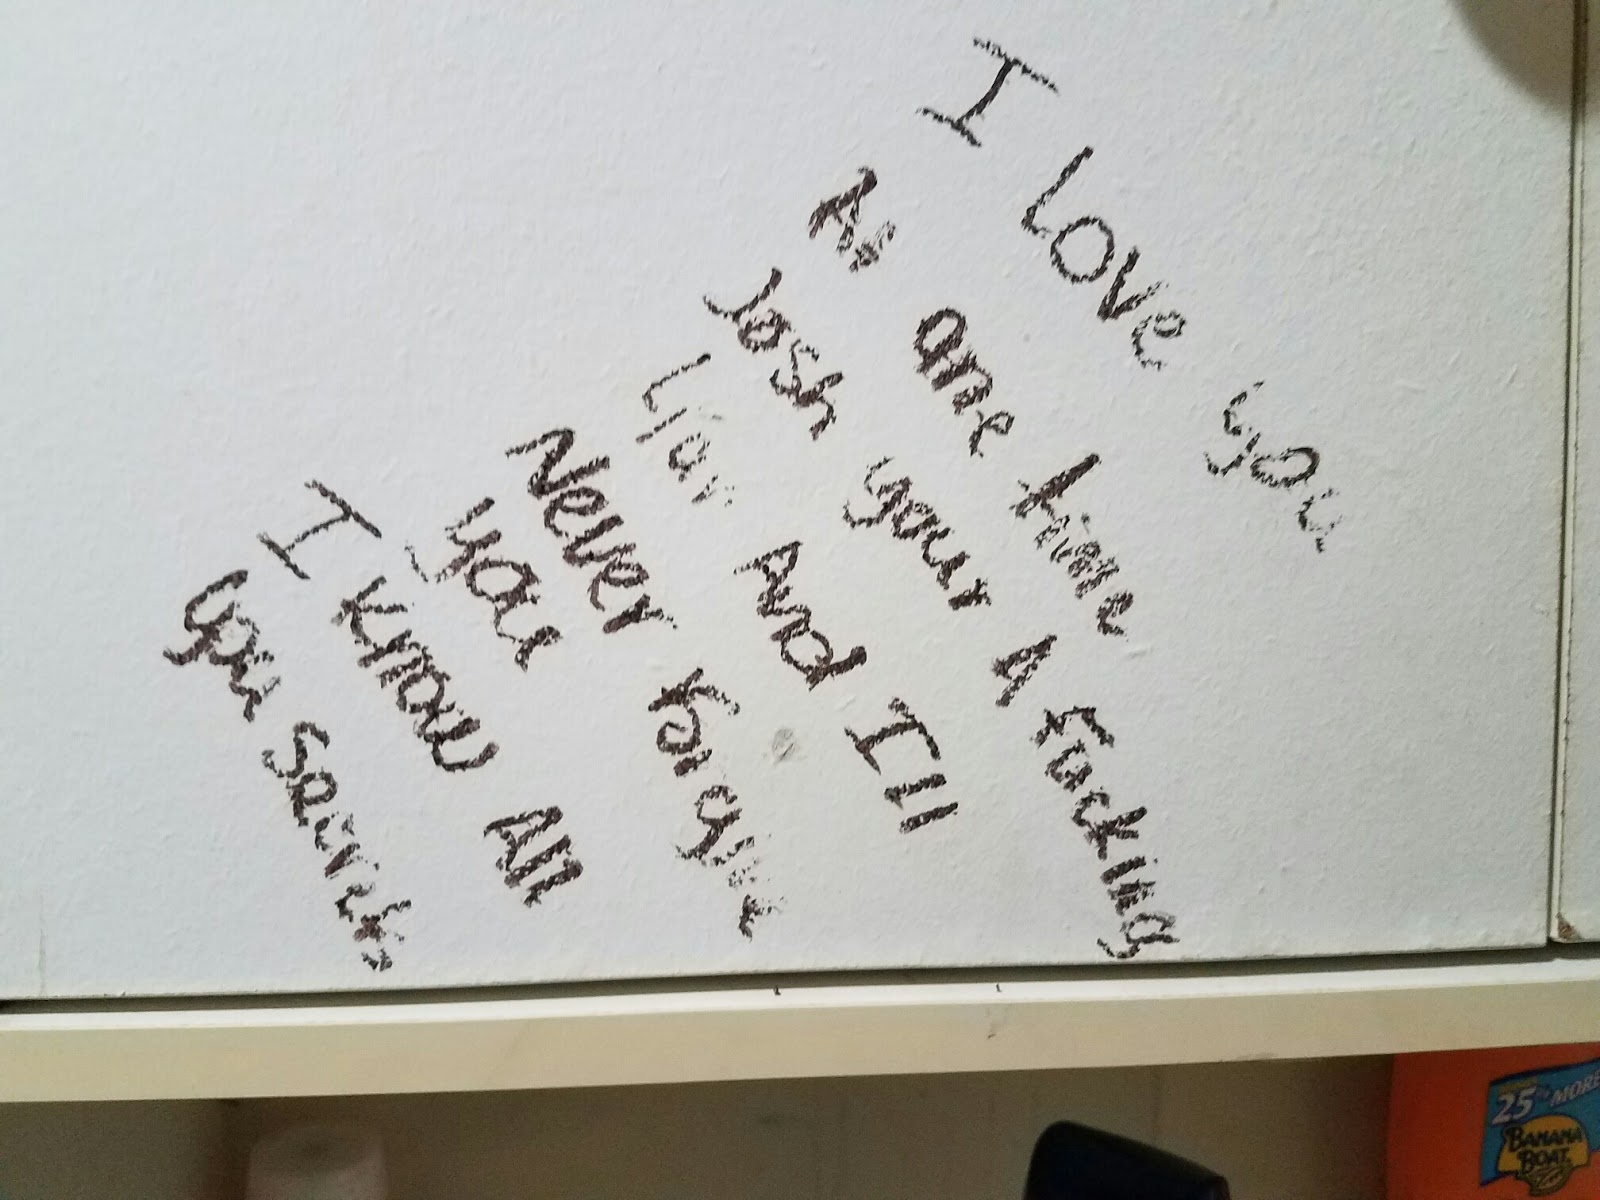 I love you
At one time
Josh your A fucking
Liar And I'll
Never Forgive
you
I know All
your secrets
25% MORE
BANANA
BOAT